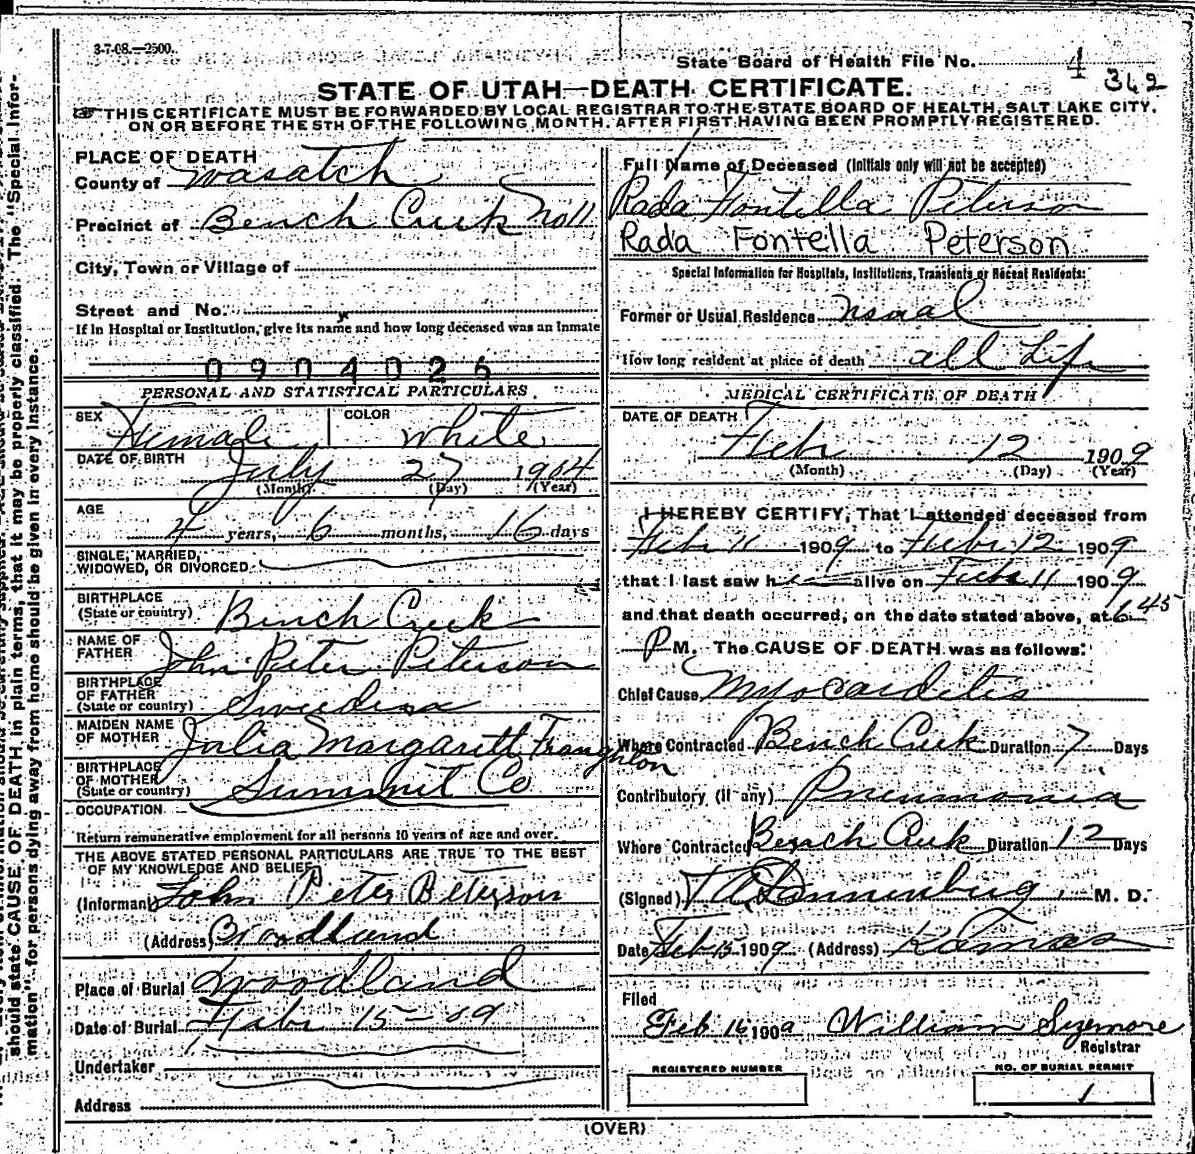 3-7-08.—2500.
State Board of Health File No. 4
362
STATE OF UTAH—DEATH CERTIFICATE.
THIS CERTIFICATE MUST BE FORWARDED BY LOCAL REGISTRAR TO THE STATE BOARD OF HEALTH, SALT LAKE CITY,
ON OR BEFORE THE 5TH OF THE FOLLOWING MONTH. AFTER FIRST HAVING BEEN PROMPTLY REGISTERED.
PLACE OF DEATH
County of Wasatch
Precinct of Bench Creek No 11
City, Town or Village of
Street and No.
If in Hospital or Institution, give its name and how long deceased was an Inmate
0904026
PERSONAL AND STATISTICAL PARTICULARS
SEX Female COLOR White
DATE OF BIRTH July 27 1904
(Month) (Day) (Year)
AGE
4 years, 6 months, 16 days
SINGLE, MARRIED,
WIDOWED, OR DIVORCED
BIRTHPLACE
(State or country) Bench Creek
NAME OF
FATHER John Peter Peterson
BIRTHPLACE
OF FATHER
(State or country)
MAIDEN NAME
OF MOTHER Julia Margarett
BIRTHPLACE
OF MOTHER
(State or country) Summit Co
OCCUPATION
Return remunerative employment for all persons 10 years of age and over.
THE ABOVE STATED PERSONAL PARTICULARS ARE TRUE TO THE BEST
OF MY KNOWLEDGE AND BELIEF
(Informant) John Peter Peterson
(Address) Woodland
Place of Burial Woodland
Date of Burial Febr 15-09
Undertaker
Address
Full Name of Deceased (Initials only will not be accepted)
Rada Fontella Peterson
Rada Fontella Peterson
Special Information for Hospitals, Institutions, Transients or Recent Residents:
Former or Usual Residence Usual
How long resident at place of death all Life
MEDICAL CERTIFICATE OF DEATH
DATE OF DEATH
Febr 12 1909
(Month) (Day) (Year)
I HEREBY CERTIFY, That I attended deceased from
Febr 11 1909 to Febr 12 1909
that I last saw h alive on Febr 11 1909
and that death occurred, on the date stated above, at 6.45
P M. The CAUSE OF DEATH was as follows:
Chief Cause Myocarditis
Where Contracted Bench Creek Duration 7 Days
Contributory (if any) Pneumonia
Where Contracted Bench Creek Duration 12 Days
(Signed) M. D.
Date Feb 15 1909 (Address) Kamas
Filed
Feb 16 1909 William Sizemore
Registrar
REGISTERED NUMBER
NO. OF BURIAL PERMIT
1
(OVER)
should state CAUSE OF DEATH in plain terms, that it may be properly classified. The "Special Infor-
mation" for persons dying away from home should be given in every instance.